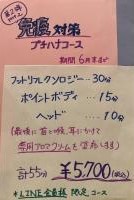 第2弾
免疫対策
プチハナコース
期間 6月末まで
フットリフレクソロジー…30分
ポイントボディ…15分
ヘッド…10分
(最後に首と喉、耳にかけて
専用アロマクリームを塗布)
合計55分 ¥5,700(税込)
*LINE会員様 限定 コース